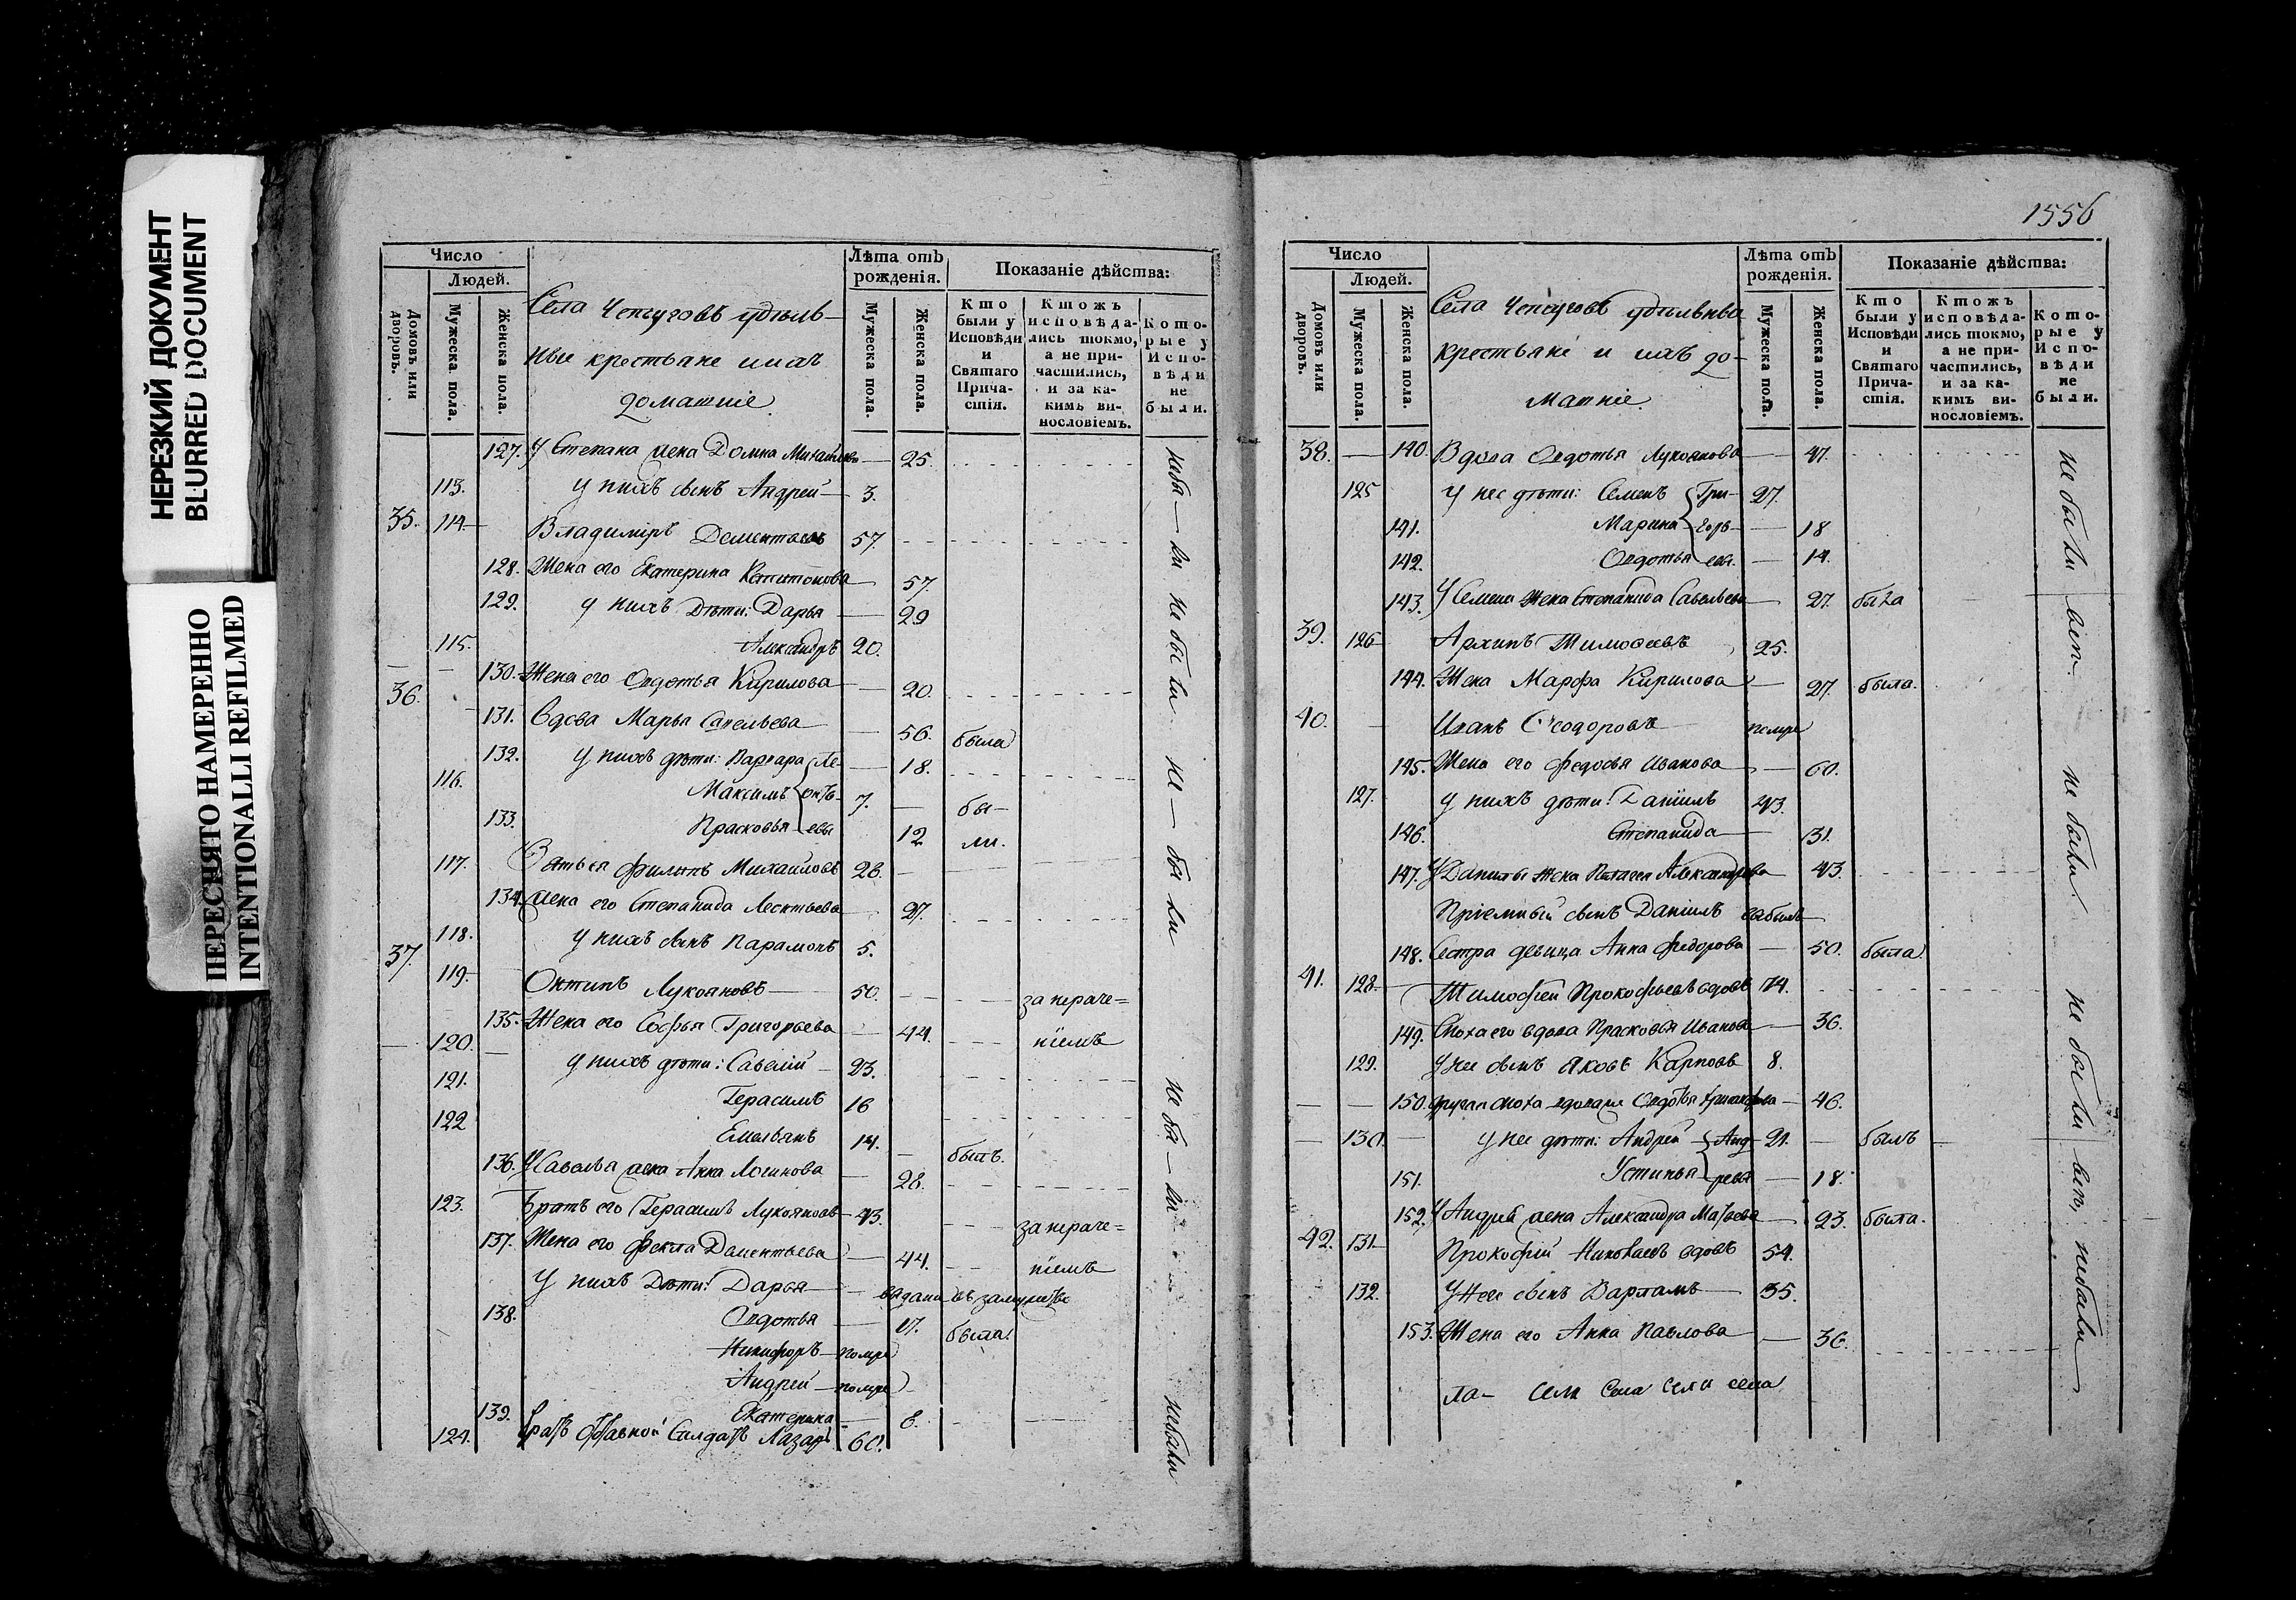 НЕРЕЗКИЙ ДОКУМЕНТ
BLURRED DOCUMENT
ПЕРЕСНЯТО НАМЕРЕННО
INTENTIONALLI REFILMED
Число
Людей.
Домовъ или дворовъ.
Мужеска пола.
Женска пола.
Села Чепчуговъ удѣль-
ные крестьяне и ихъ
домашніе
Лѣта отъ рожденія.
Мужеска пола.
Женска пола.
Показаніе дѣйства:
Кто были у Исповѣди и Святаго Прича- стія.
Ктожъ исповѣда- лись токмо, а не при- частились, и за ка- кимъ ви- нословіемъ.
Кото- рые у Испо- вѣди не были.
127. У Степана жена Домна 25.
113. у нихъ сынъ Андрей 3.
35. 114. Владимиръ Дементьевъ 57.
128. Жена его Екатерина 57.
129. у нихъ Дѣти: Дарья 29
115. Александръ 20.
130. Жена его Овдотья Кирилова 20.
36. 131. Вдова Марья Савельева 56. была
132. у нихъ дѣти: Варвара Ле- 18.
116. Максимъ онть- 7. бы-
133. Прасковья евы 12 ли.
117. Зять ея Филипъ Михайловъ 28.
134. жена его Степанида Леонтьева 27.
118. у нихъ сынъ Парамонъ 5.
37. 119. Лукояновъ 50. за нераче=
135. Жена его Софья Григорьева 44. ніемъ
120. у нихъ дѣти: Савелій 23.
121. Герасимъ 16
122 Емельянъ 14. былъ.
136. У Савелья жена Анна Логинова 28.
123. Братъ его Герасимъ Лукояновъ 43. за нераче=
137. Жена его Фекла Дементьева 44. ніемъ
У нихъ Дѣти: Дарья выдана въ замужство
138. Овдотья 17. была.
Никифоръ помре
Андрей помре
139. Екатерина 6.
124. Братъ Отставной Солдатъ Лазарь 60.
не бы — ли не были не — бы ли не бы — ли небыли
1556
Число
Людей.
Домовъ или дворовъ.
Мужеска пола.
Женска пола.
Села Чепчуговъ удѣльныя
крестьяні и ихъ до-
машніе.
Лѣта отъ рожденія.
Мужеска пола.
Женска пола.
Показаніе дѣйства:
Кто были у Исповѣди и Святаго Прича- стія.
Ктожъ исповѣда- лись токмо, а не при- частились, и за ка- кимъ ви- нословіемъ.
Кото- рые у Испо- вѣди не были.
38. 140. Вдова Овдотья Лукоянова 47.
125 у нее дѣти: Семенъ Гри- 27.
141. Марина горь- 18
142. Овдотья евы. 14.
143. У Семена Жена Степанида Савельева 27. была
39. 126 Архипъ Тимофеевъ 25.
144. Жена Марфа Кирилова 27. была.
40. Иванъ Феодоровъ помре
145. Жена его Федосья Иванова 60.
127. у нихъ дѣти: Даніилъ 43.
146. Степанида 31.
147. У Данилы жена Пелагея Александрова 43.
Пріемный сынъ Даніилъ
148. Сестра девица Анна Федорова 50. была.
41. 128. Тимофей Прокофьевъ вдовъ 74.
149. Сноха его вдова Прасковья Иванова 36.
129. У нее сынъ Яковъ Карповъ 8.
150. другая сноха вдовая Овдотья 46.
130. у нее дѣти: Андрей Анд- 21. былъ
151. Устинья реевы 18.
152. У Андрея жена Александра Матвеева 23. была.
42. 131. Прокофій Николаевъ вдовъ 54.
132. У Нее сынъ Варламъ 35.
153. Жена его Анна Павлова 36.
ла- села села села
не были не были не были небыли